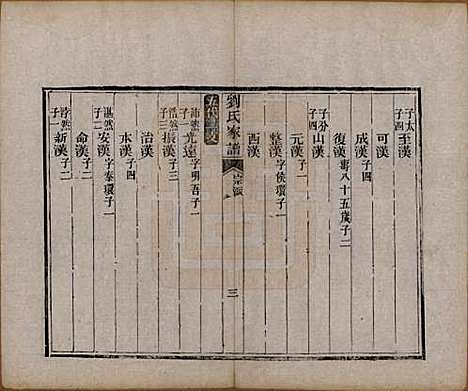 子太
子四
至漢
可漢
成漢子四
復漢壽八十五歲子二
子分
子三
山漢
元漢子一
整漢字侯環子一
西漢
劉氏家譜
三
沛然
子一
光遠字明吾子一
浩然
子三
振漢子三
治漢
本漢子二
湛然
子二
安漢字泰環子一
命漢子二
子一
新漢子一